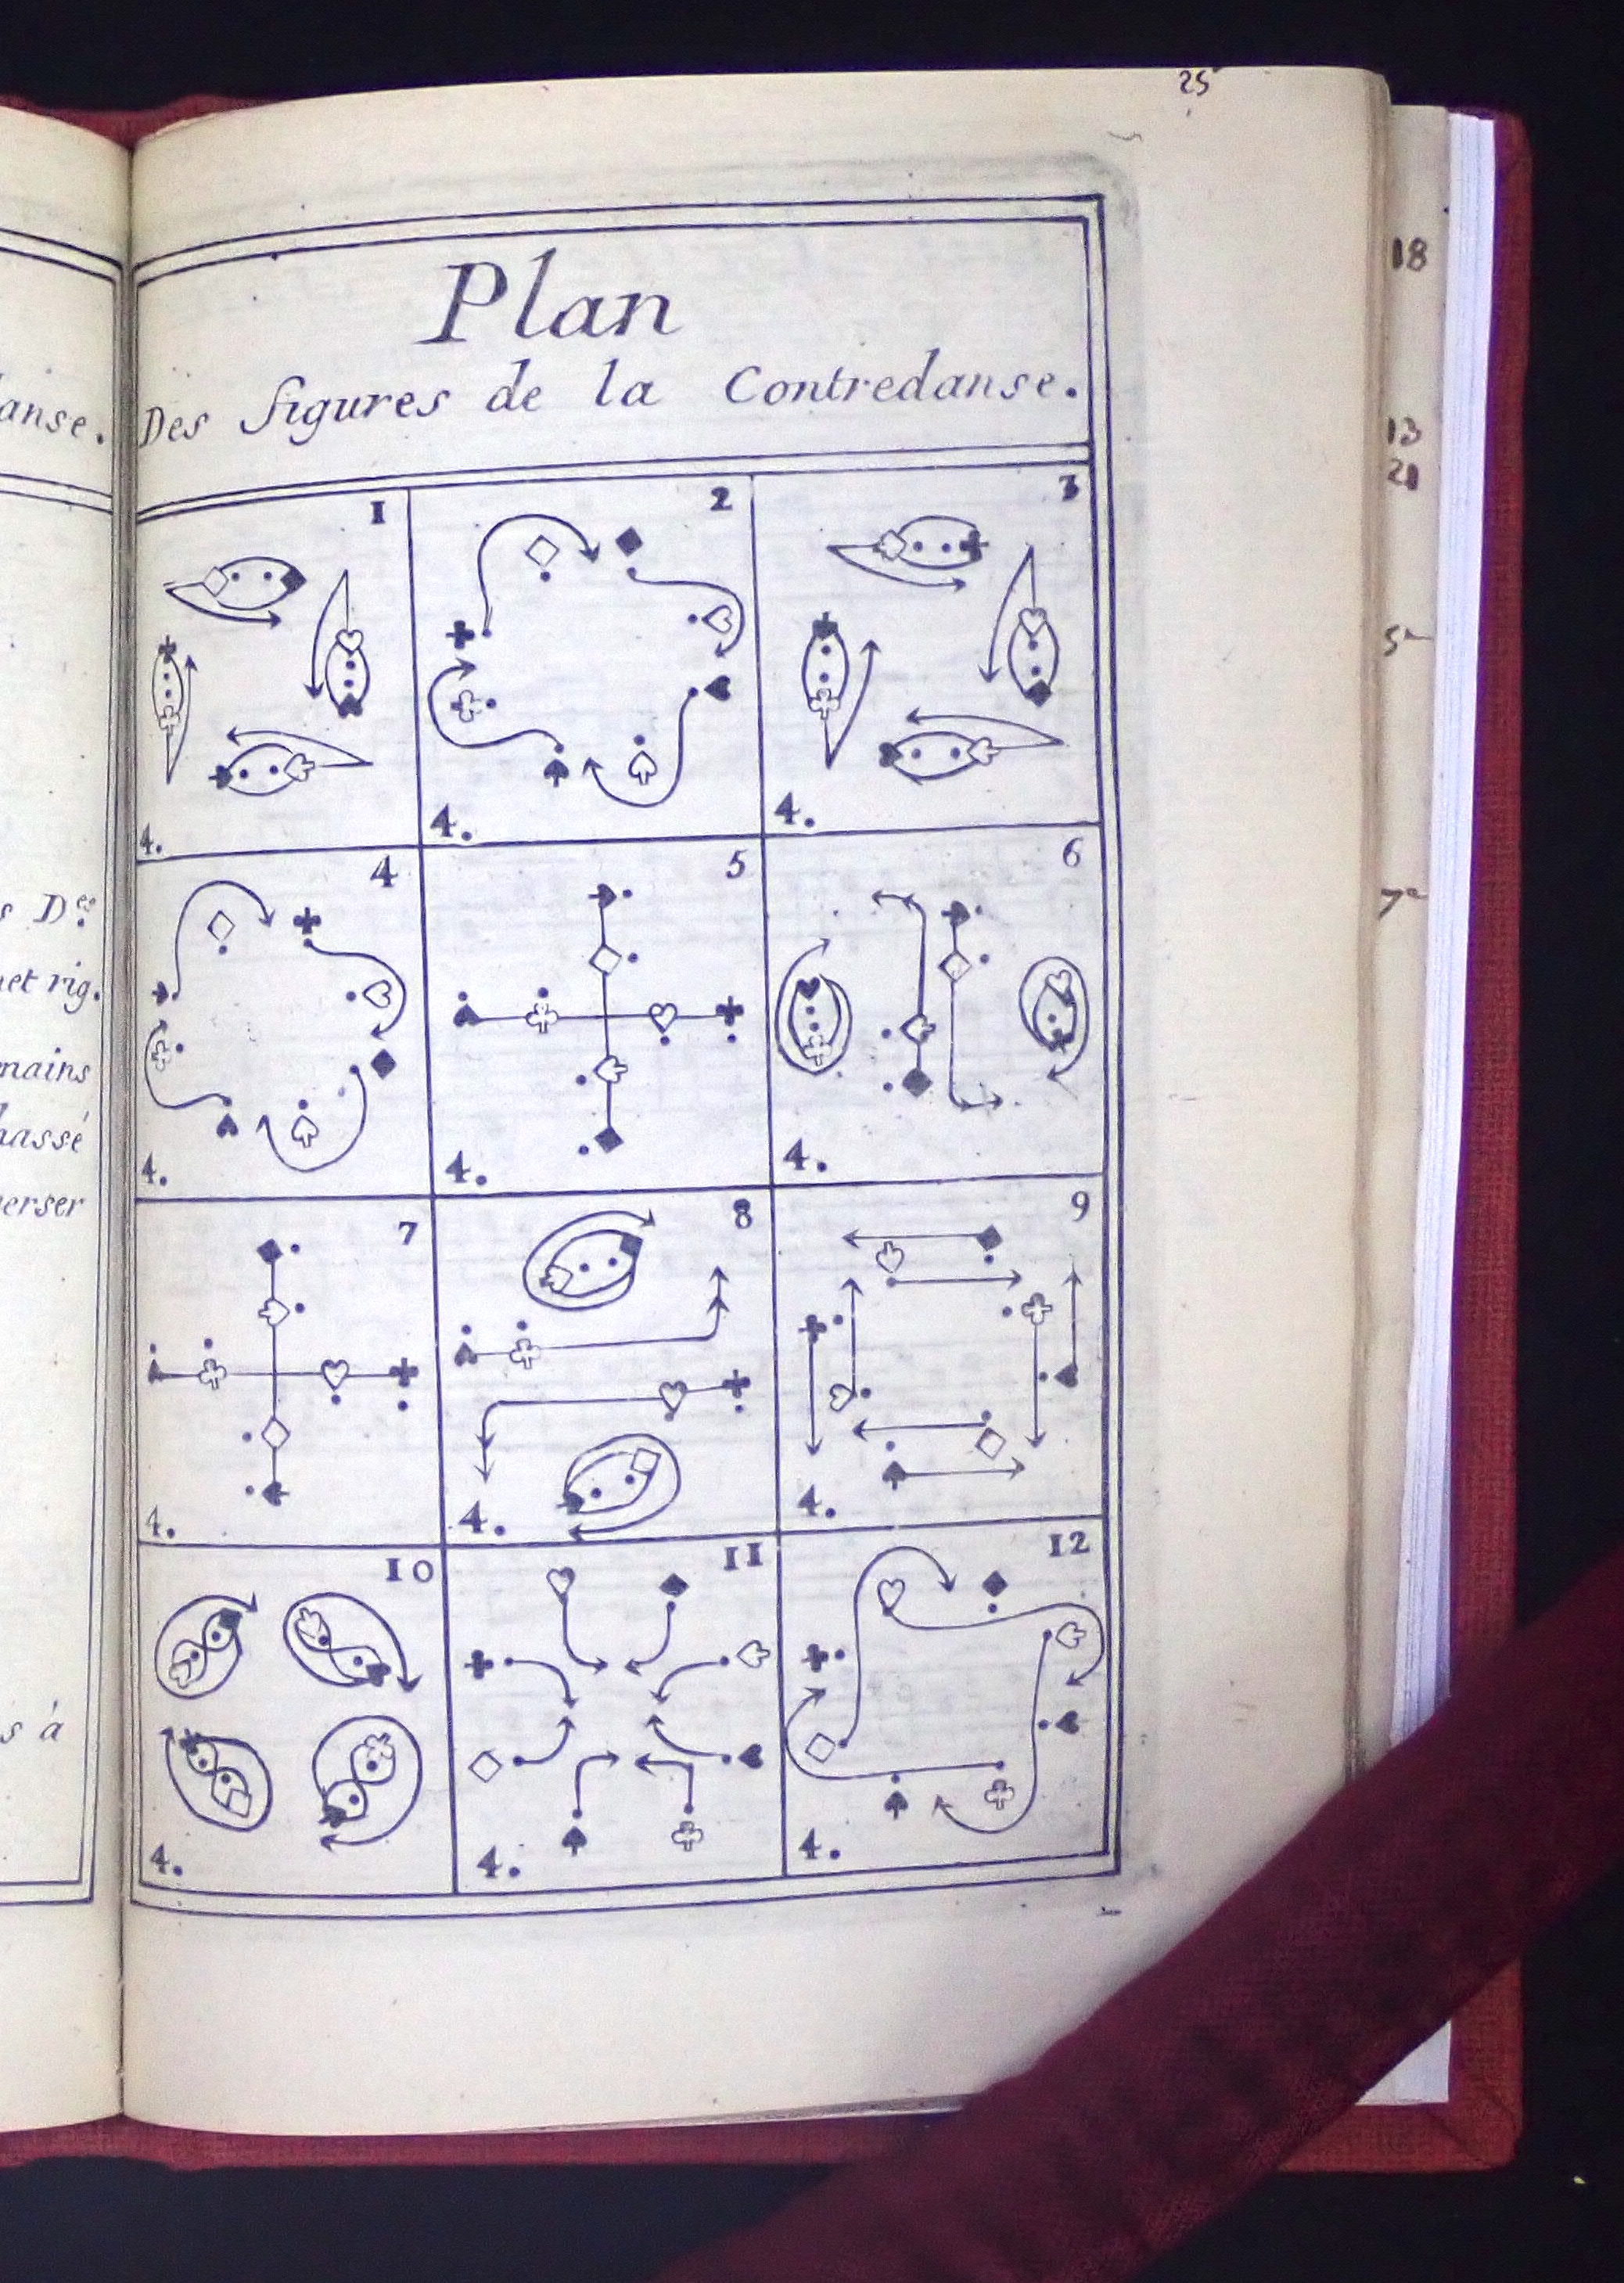 25
18
13
21
5a
7a
anse.
s D.es
et rig.
mains
hassé
erser
s à
Plan
Des figures de la Contredanse.
1 2 3
4. 4. 4.
4 5 6
4. 4. 4.
7 8 9
4. 4. 4.
10 11 12
4. 4. 4.